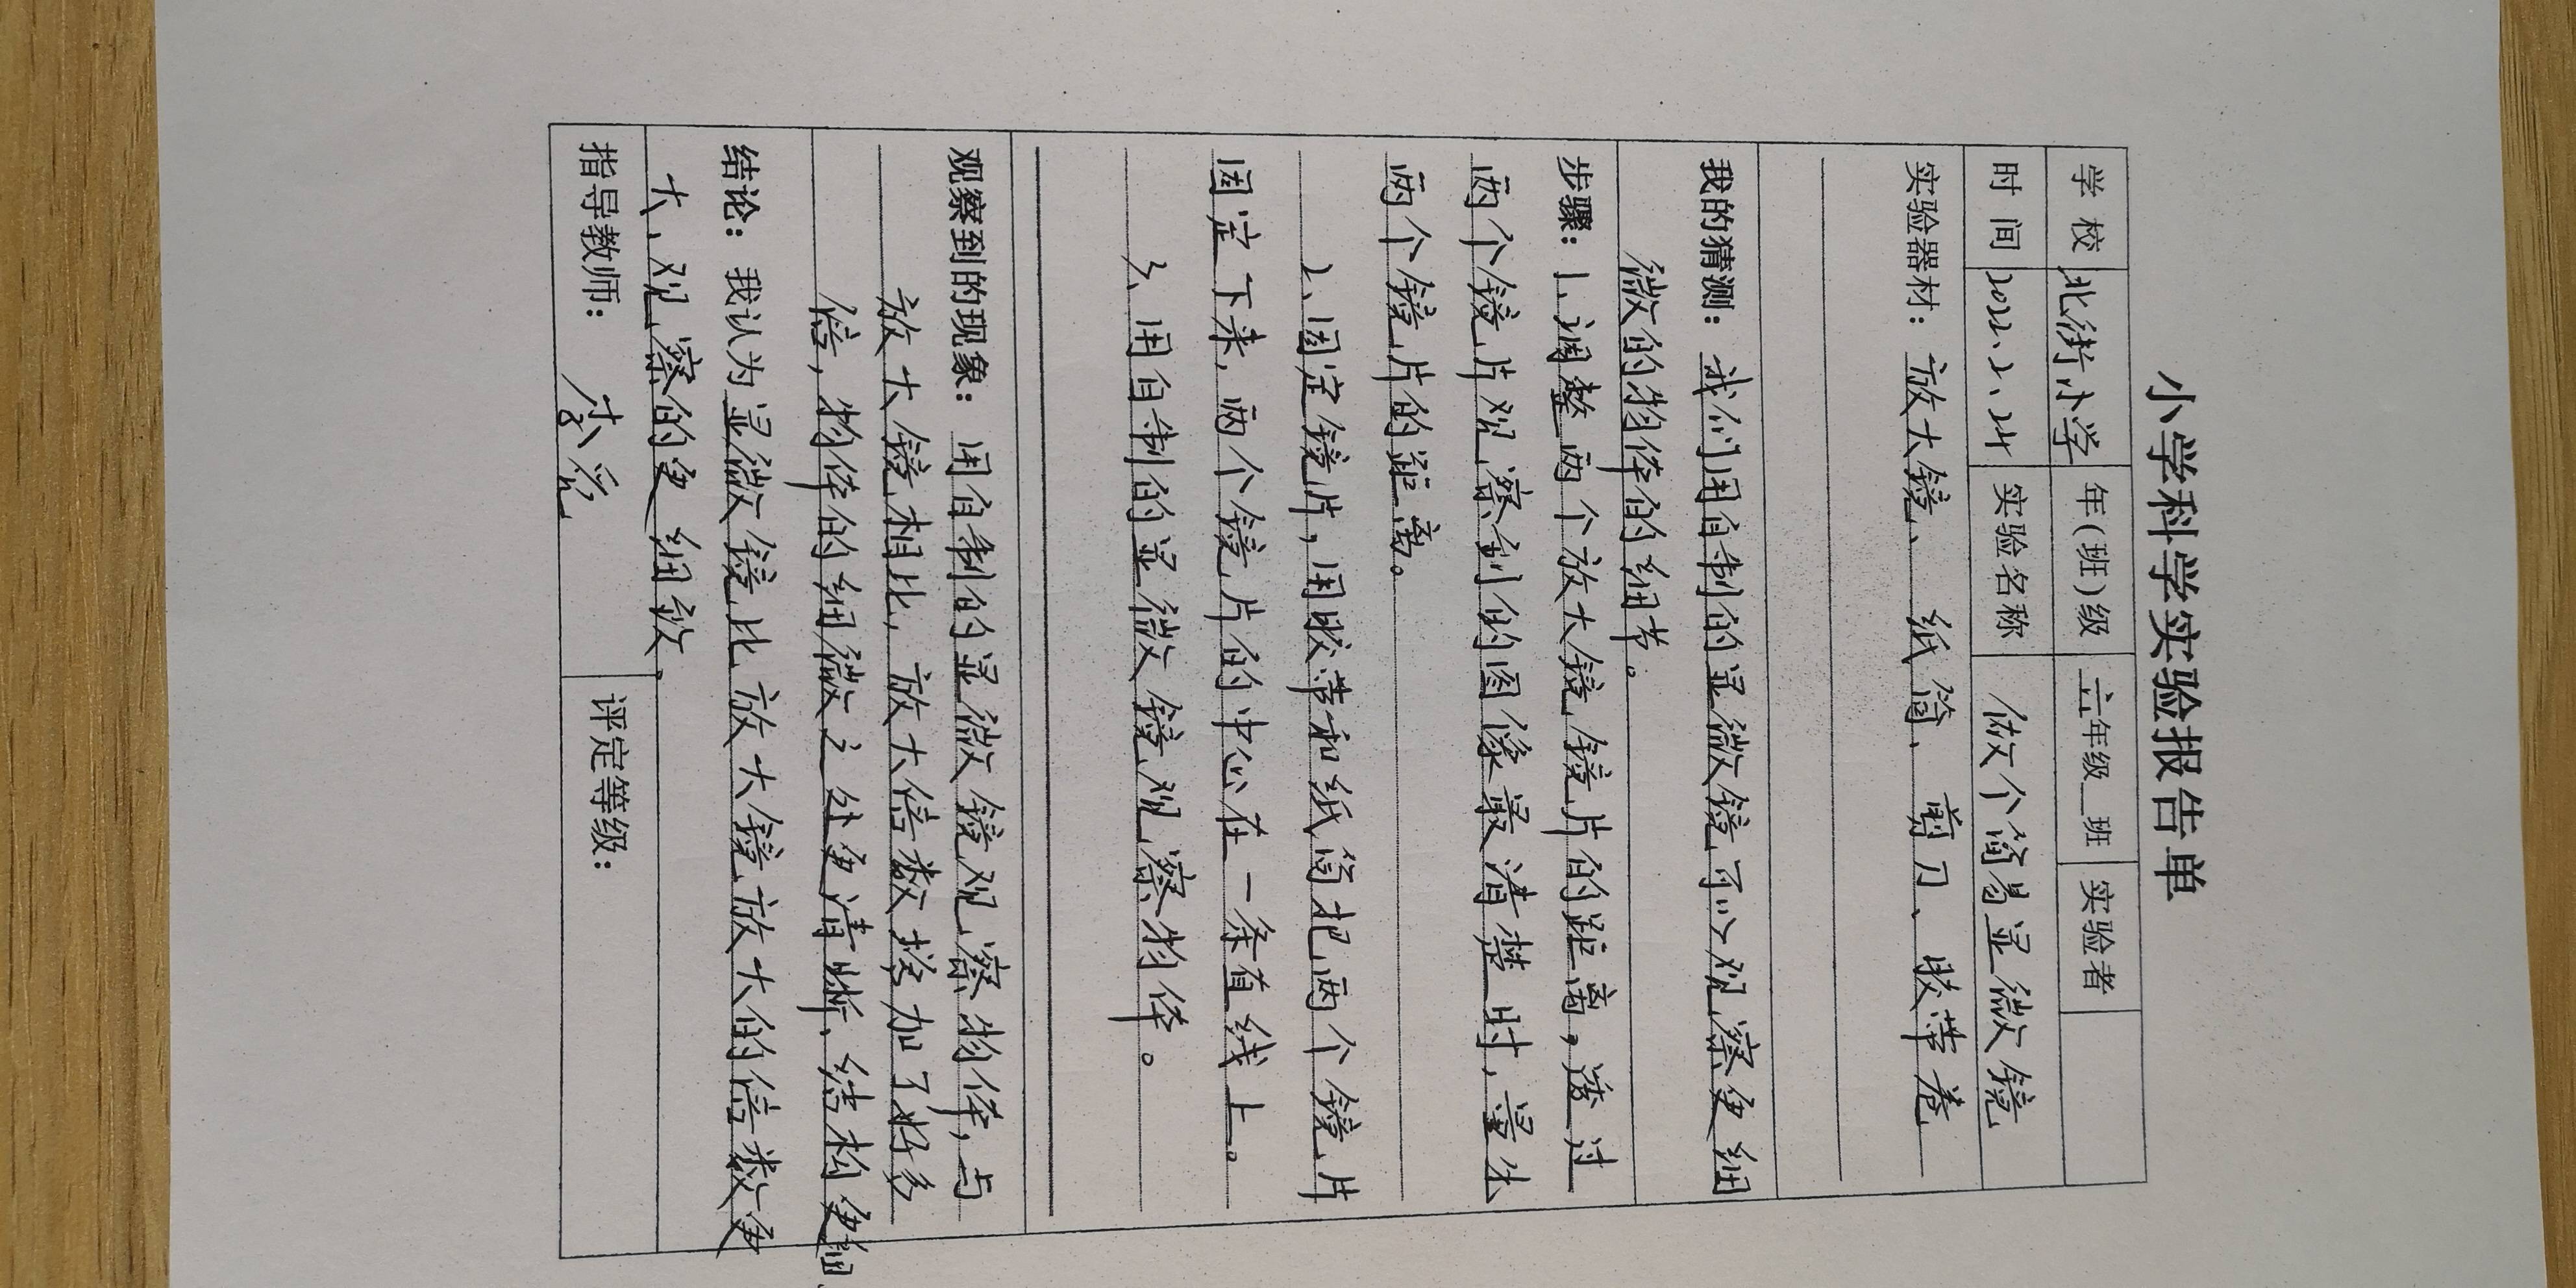 小学科学实验报告单
学 校 北街小学 年(班)级 六年级 班 实验者
时 间 2022.2.24 实验名称 做个简易显微镜
实验器材：放大镜、纸筒、剪刀、胶带卷
我的猜测：我们用自制的显微镜可以观察更细
微的物体的细节。
步骤：1、调整两个放大镜镜片的距离，透过
两个镜片观察到的图像最清楚时，量出
两个镜片的距离。
2、固定镜片，用胶带和纸筒把两个镜片
固定下来，两个镜片的中心在一条直线上。
3、用自制的显微镜观察物体。
观察到的现象：用自制的显微镜观察物体，与
放大镜相比，放大倍数增加了好多
倍，物体的细微之处更清晰、结构更细
结论：我认为显微镜比放大镜放大的倍数更
大、观察的更细致
指导教师： 评定等级：